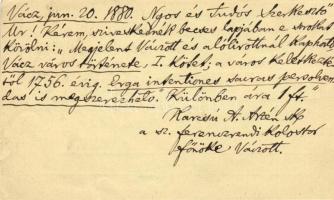 Vácz, jun. 20. 1880. Ngos és Tudós Szerkesztő
Úr! Kérem, sziveskednék becses lapjában e sorokat
közölni: „Megjelent Váczott és alólirottnál kapható:
Vácz város története, I. Kötet; a város keletkezé-
től 1756. évig. Erga intentiones sacras persolven-
das is megszerezhető." Különben ára 1 frt.
Karcsú A. Arzén
a sz. ferenczrendi kolostor
főnöke Váczott.